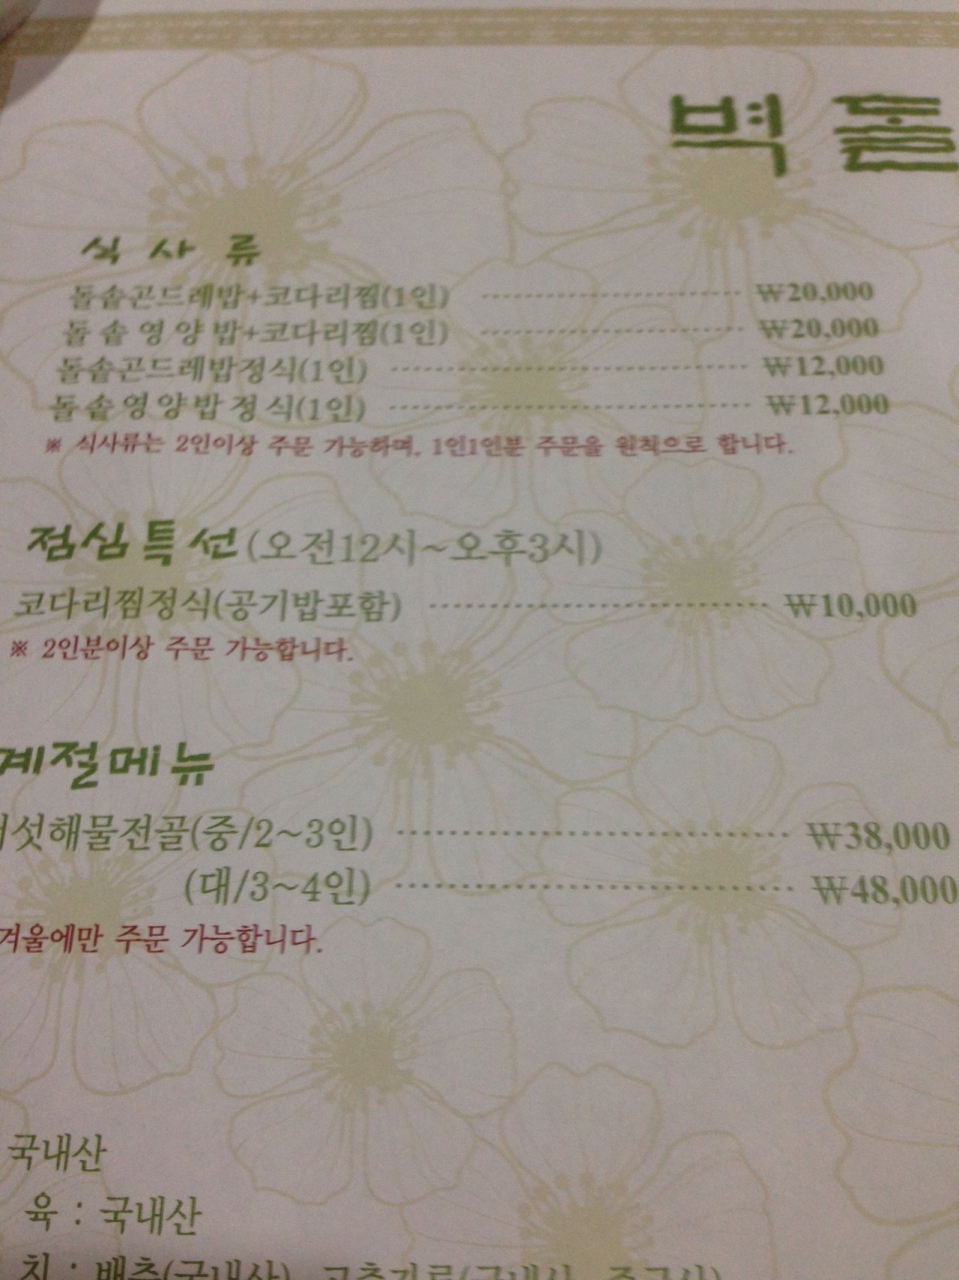 벽 돌
식 사 류
돌솥곤드레밥+코다리찜(1인) ₩20,000
돌 솥 영 양 밥+코다리찜(1인) ₩20,000
돌솥곤드레밥정식(1인) ₩12,000
돌 솥 영 양 밥 정 식(1인) ₩12,000
※ 식사류는 2인이상 주문 가능하며, 1인1인분 주문을 원칙으로 합니다.
점심특선(오전12시~오후3시)
코다리찜정식(공기밥포함) ₩10,000
※ 2인분이상 주문 가능합니다.
계절메뉴
버섯해물전골(중/2~3인) ₩38,000
(대/3~4인) ₩48,000
겨울에만 주문 가능합니다.
국내산
육 : 국내산
치 : 배추(국내산), 고추가루(국내산,